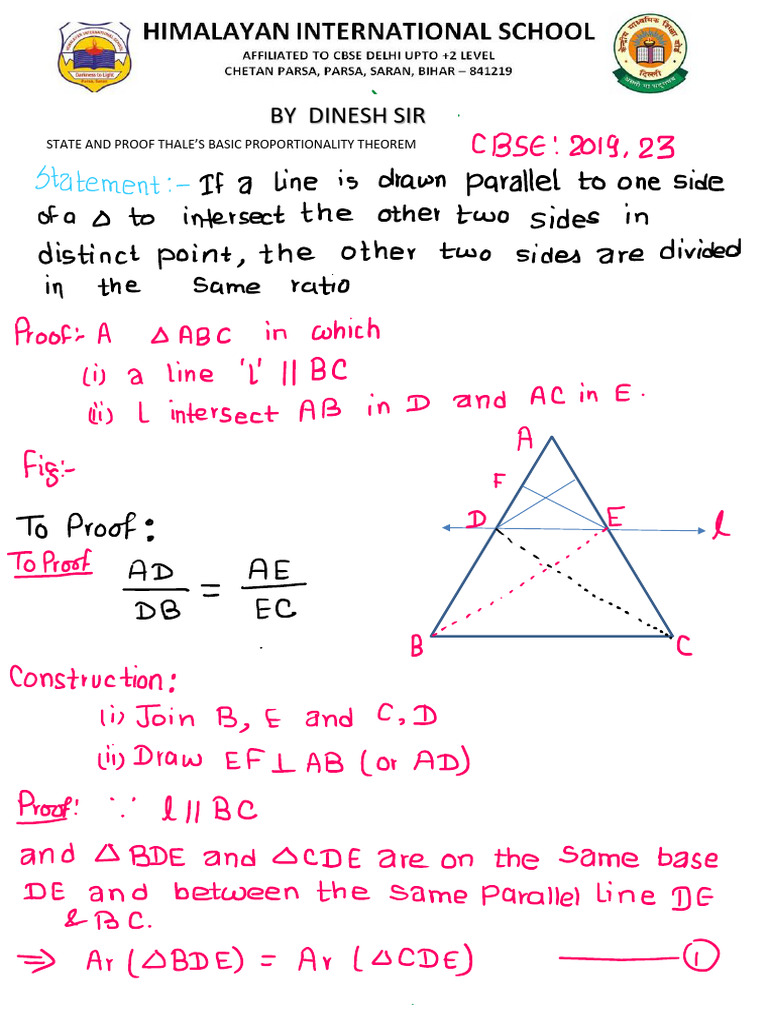 HIMALAYAN INTERNATIONAL SCHOOL
AFFILIATED TO CBSE DELHI UPTO +2 LEVEL
CHETAN PARSA, PARSA, SARAN, BIHAR – 841219
BY DINESH SIR
STATE AND PROOF THALE'S BASIC PROPORTIONALITY THEOREM
CBSE: 2019, 23
Statement:- If a line is drawn parallel to one side
of a △ to intersect the other two sides in
distinct point, the other two sides are divided
in the same ratio
Proof:- A △ ABC in which
(i) a line 'l' || BC
(ii) l intersect AB in D and AC in E.
Fig:-
A
F
D
E
l
B
C
To Proof:
To Proof
AD/DB = AE/EC
Construction:
(i) Join B, E and C, D
(ii) Draw EF ⊥ AB (or AD)
Proof: ∵ l || BC
and △ BDE and △CDE are on the same base
DE and between the same parallel line DE
& BC.
⇒ Ar (△BDE) = Ar (△CDE) ——— ①